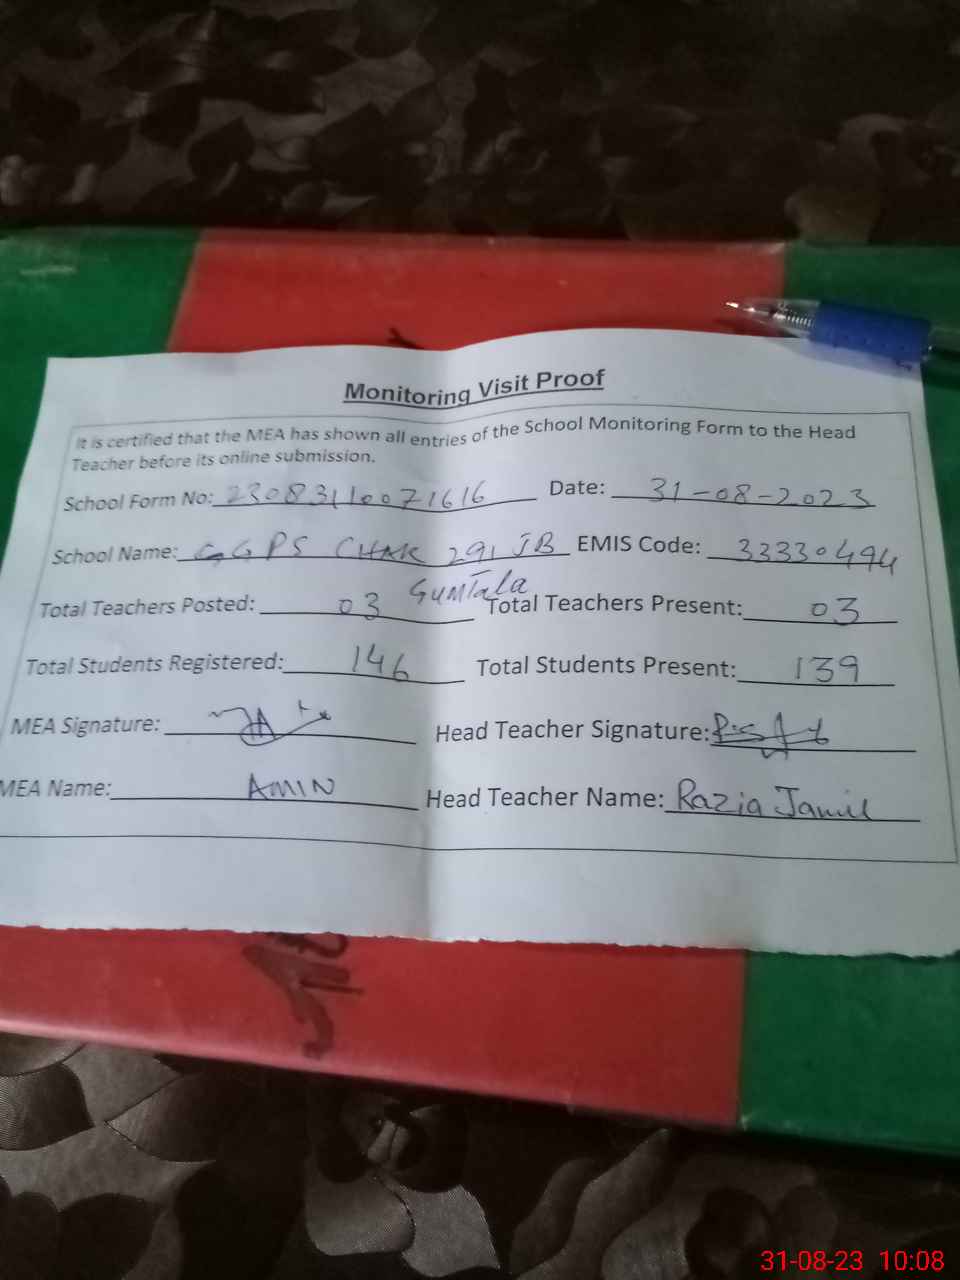 Monitoring Visit Proof
It is certified that the MEA has shown all entries of the School Monitoring Form to the Head
Teacher before its online submission.
School Form No: 23083110071616 Date: 31-08-2023
School Name: GGPS CHAK 291 JB EMIS Code: 33330494
Gumtala
Total Teachers Posted: 03 Total Teachers Present: 03
Total Students Registered: 146 Total Students Present: 139
MEA Signature: Head Teacher Signature:
MEA Name: AMIN Head Teacher Name: Razia Jamil
31-08-23 10:08